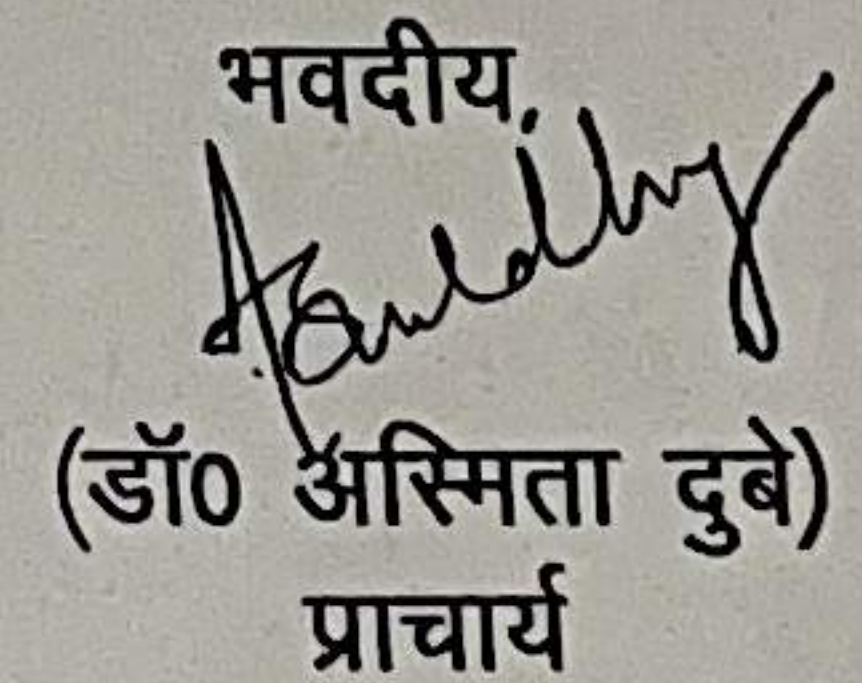 भवदीय,
(डॉ0 अस्मिता दुबे)
प्राचार्य